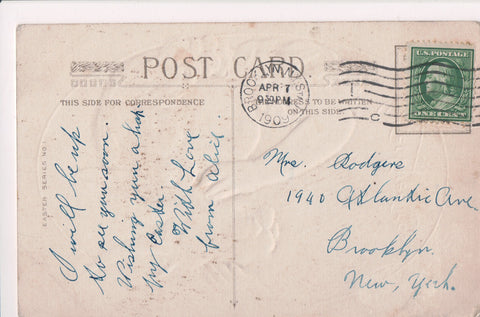 POST CARD
THIS SIDE FOR CORRESPONDENCE
ESS TO BE WRITTEN
ON THIS SIDE.
EASTER SERIES NO.
BROOKLYN, N.Y.
APR 7
1909
U.S. POSTAGE
ONE CENT
I will be up
to see you soon.
Wishing you a hap
py Easter
With Love
from Alice.
Mrs. Dodgers
1940 Atlantic Ave.
Brooklyn.
New, York.